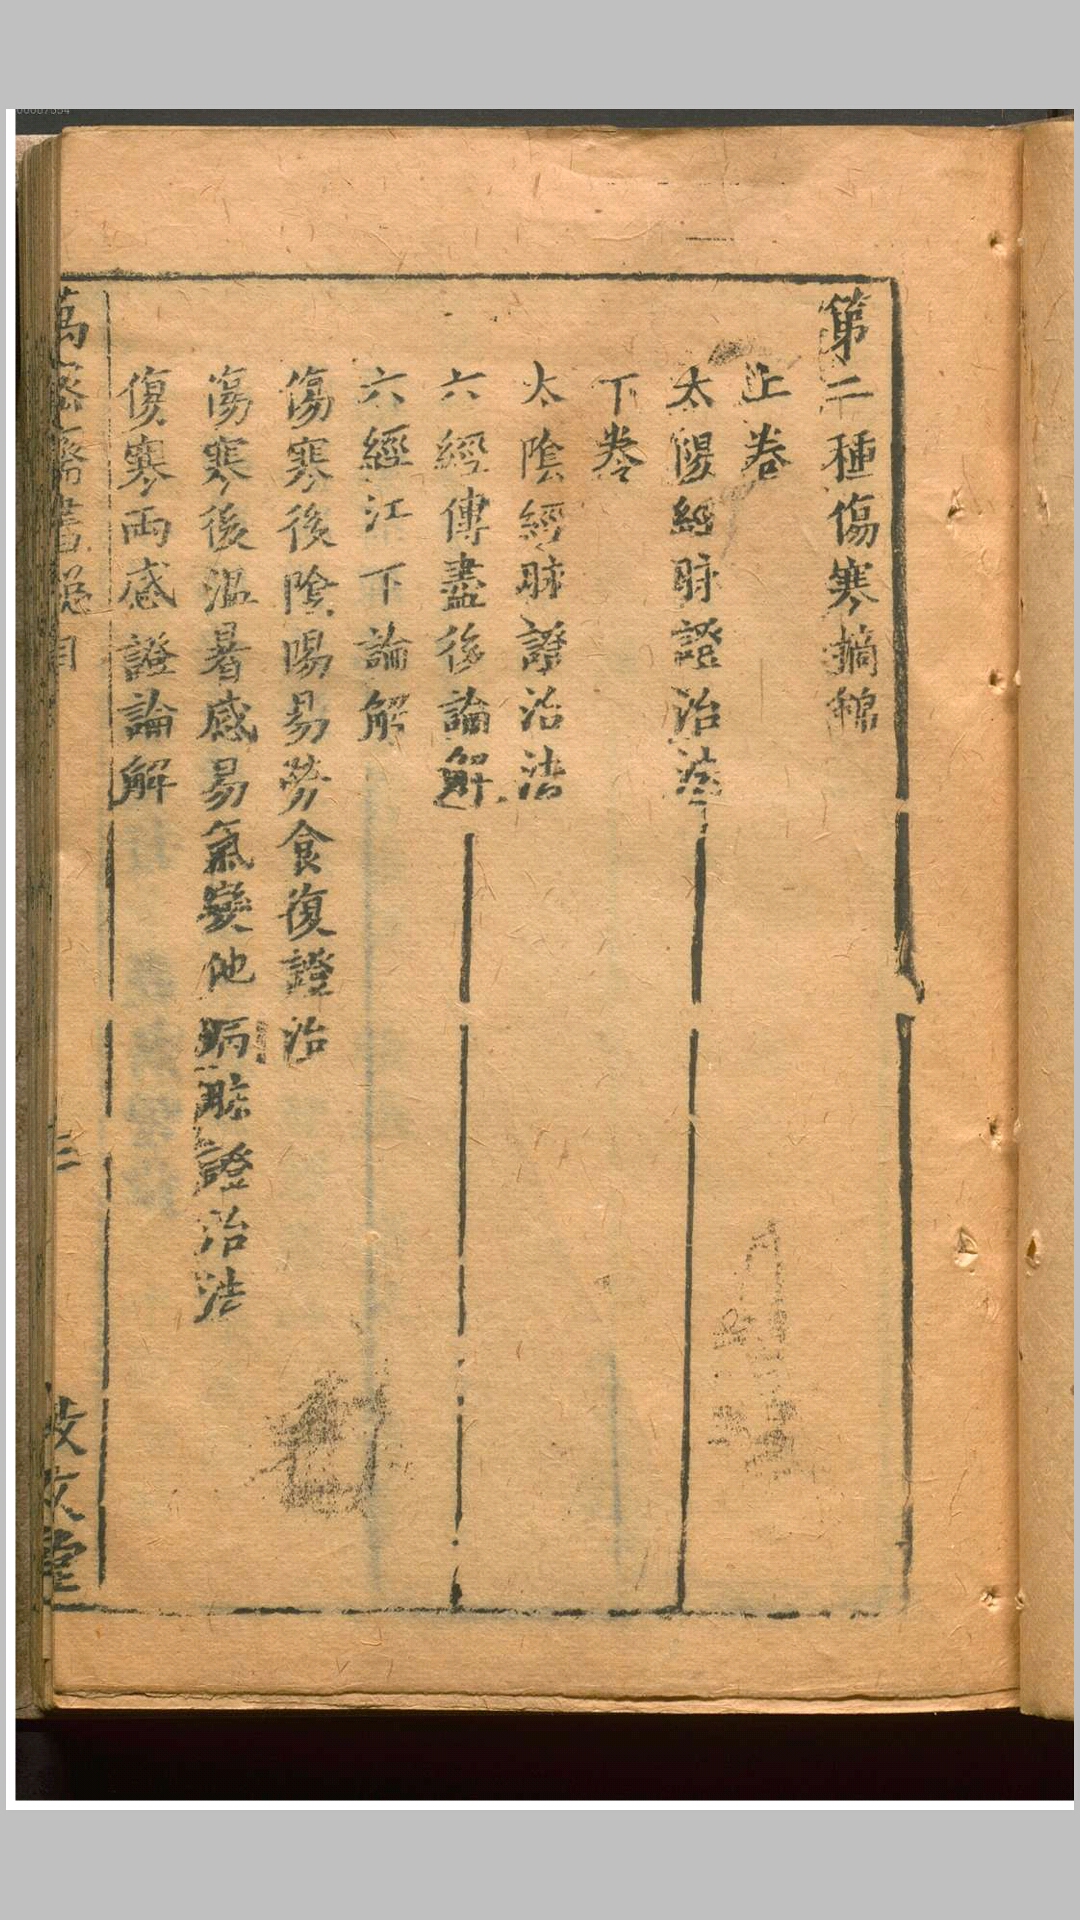 第二種傷寒摘錦
上卷
太陽經脉證治法
下卷
太陰經脉證治法
六經傳盡後論解
六經汗下論解
傷寒後陰陽易勞食復證治
傷寒後溫暑感易氣變他病脉證治法
傷寒兩感證論解
萬密齋書總目
三
敷文堂